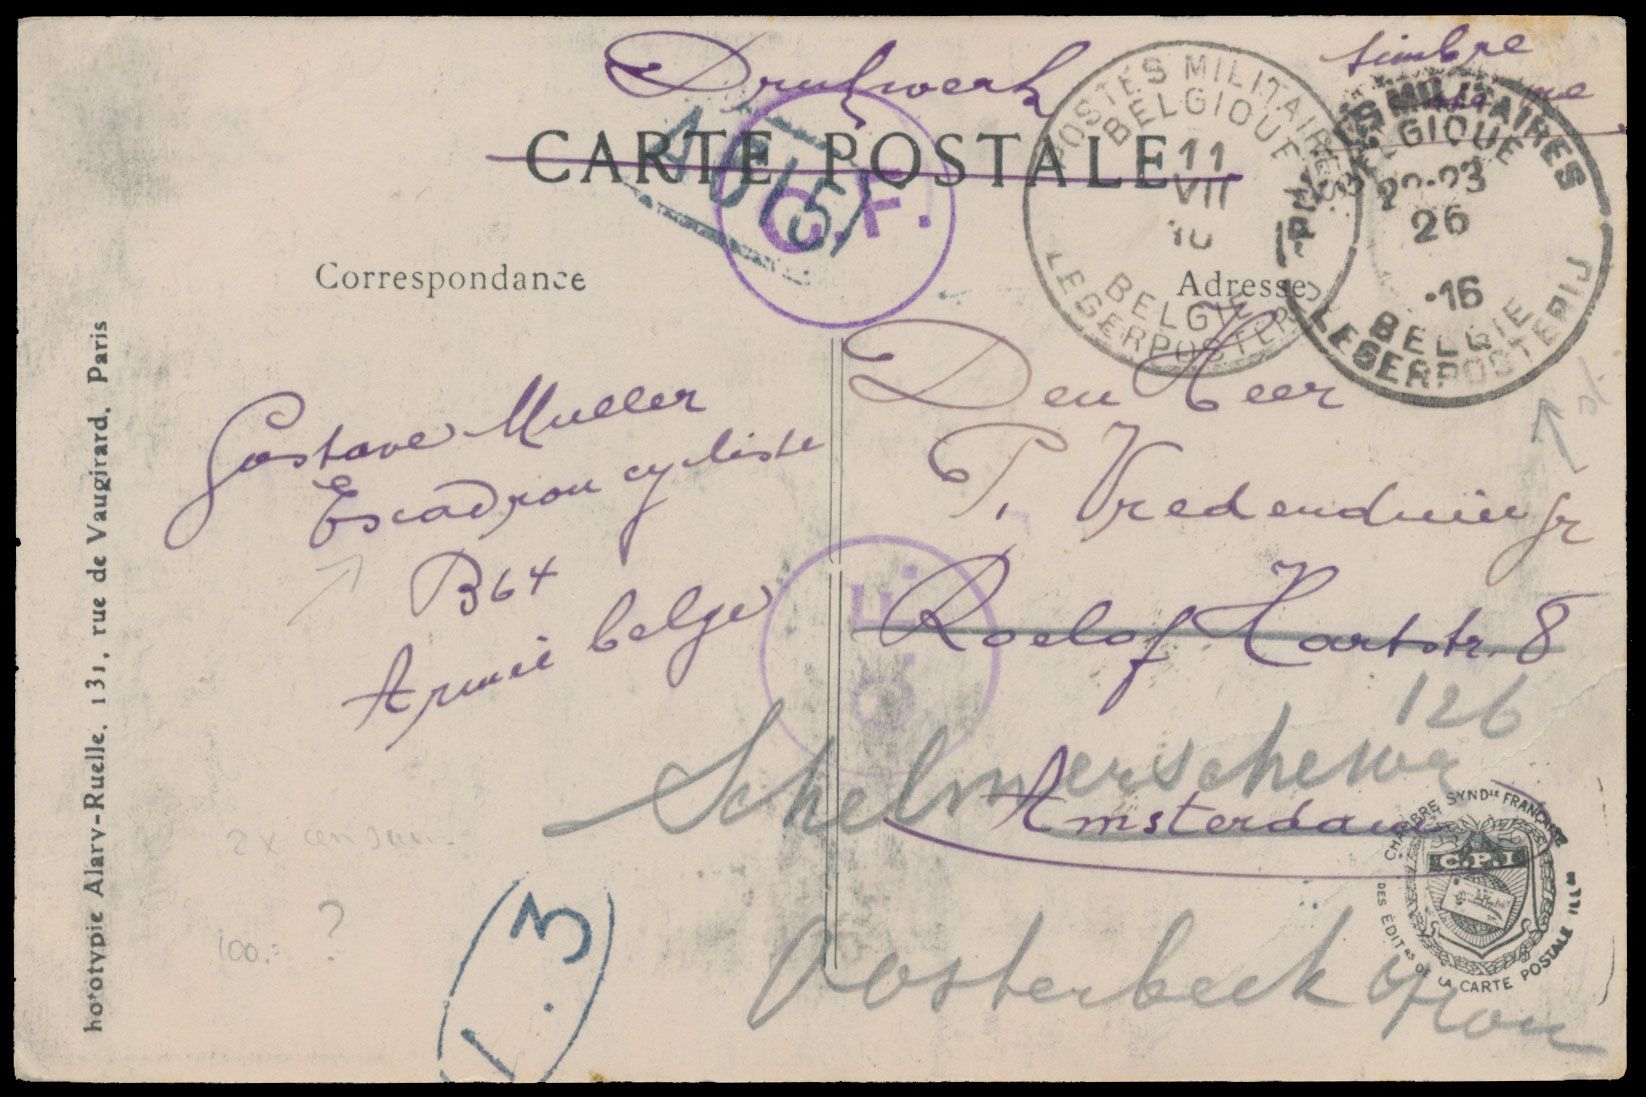 Drukwerk
timbre
CARTE POSTALE
C.F.
POSTES MILITAIRES
BELGIQUE
11
VII
BELGIE
LEGERPOSTERIJ
MILITAIRES
22-23
26
·16
BELGIE
LEGERPOSTERIJ
Correspondance
Adresse
Gustave Muller
Escadron cycliste
B64
Armée belge
Den Heer
P. Vredenduin jr
Roelof Hartstr. 8
126
Schelmerscheweg
Amsterdam
Oosterbeek
2x
100.=
?
1.3
hototypie Alary-Ruelle, 131, rue de Vaugirard, Paris
CHAMBRE SYNDLE FRANÇAISE
C.P.I
DES ÉDITRS DE LA CARTE POSTALE ILLEE